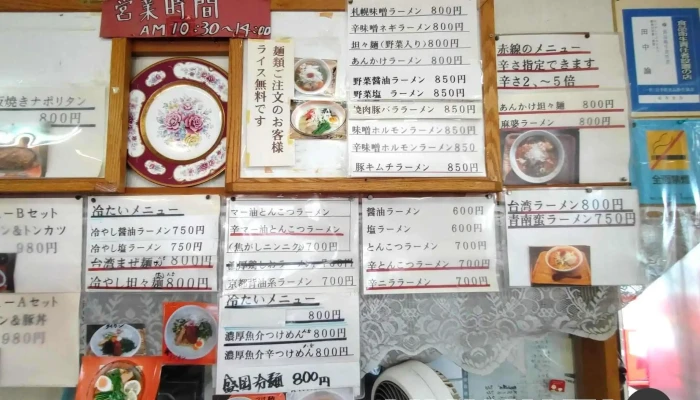 営業時間
AM10:30~14:00
麺類ご注文のお客様
ライス無料です
札幌味噌ラーメン 800円
辛味噌ネギラーメン 800円
担々麺(野菜入り)800円
あんかけラーメン 800円
野菜醤油ラーメン 850円
野菜塩 ラーメン 850円
豚バララーメン 850円
味噌ホルモンラーメン 850円
辛味噌ホルモンラーメン 850
豚キムチラーメン 850円
赤線のメニュー
辛さ指定できます
辛さ2、~5倍
あんかけ担々麺 800円
麻婆ラーメン 800円
焼きナポリタン
800円
ーBセット
ン&トンカツ
980円
ーAセット
ン&豚丼
980円
冷たいメニュー
冷やし醤油ラーメン750円
冷やし塩ラーメン 750円
台湾まぜ麺 800円
冷やし担々麺 800円
マー油とんこつラーメン
辛マー油とんこつラーメン
(焦がしニンニク)700円
京都背油系ラーメン 700円
冷たいメニュー
800円
濃厚魚介つけめん 800円
濃厚魚介辛つけめん 800円
盛岡冷麺 800円
醤油ラーメン 600円
塩ラーメン 600円
とんこつラーメン 700円
辛とんこつラーメン 700円
辛ニララーメン 700円
台湾ラーメン800円
青南蛮ラーメン750円